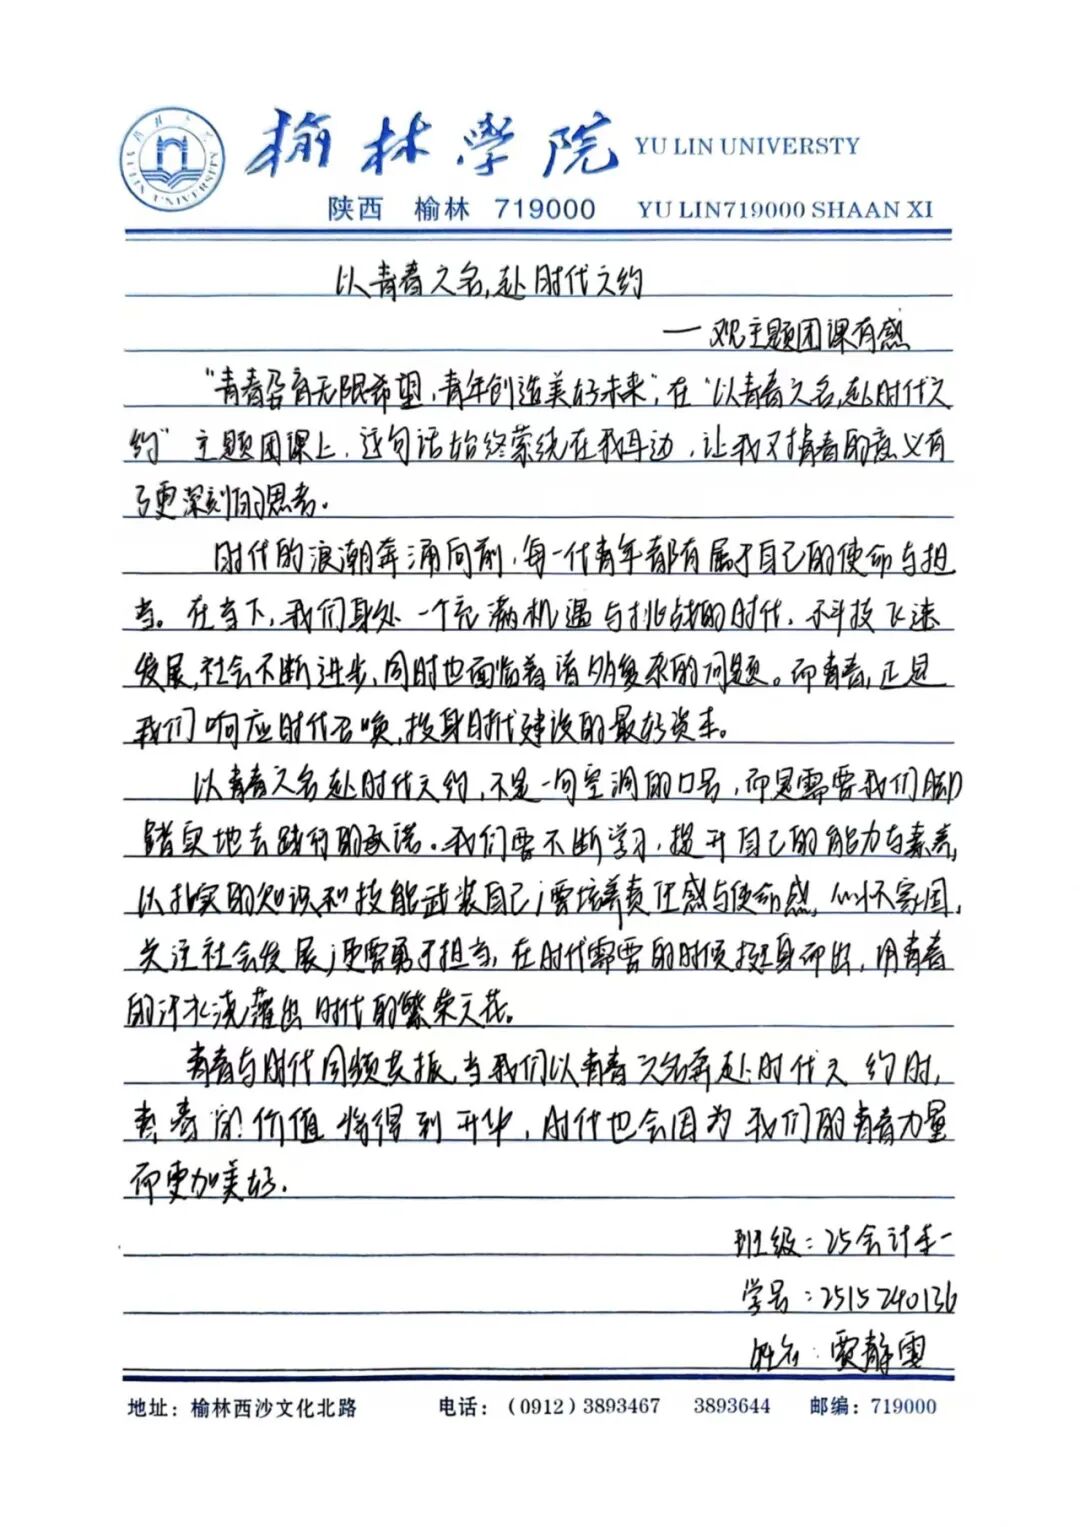 榆林学院 YU LIN UNIVERSTY
陕西 榆林 719000 YU LIN719000 SHAAN XI
以青春之名,赴时代之约
—观主题团课有感
“青春孕育无限希望,青年创造美好未来”,在“以青春之名,赴时代之
约”主题团课上,这句话始终萦绕在我耳边,让我对青春的意义有
了更深刻的思考。
时代的浪潮奔涌向前,每一代青年都有属于自己的使命与担
当。在当下,我们身处一个充满机遇与挑战的时代,科技飞速
发展,社会不断进步,同时也面临着诸多复杂的问题。而青春,正是
我们响应时代召唤,投身时代建设的最好资本。
以青春之名赴时代之约,不是一句空洞的口号,而是需要我们脚
踏实地去践行的承诺。我们要不断学习,提升自己的能力与素养,
以扎实的知识和技能武装自己;要培养责任感与使命感,心怀家国,
关注社会发展;更要勇于担当,在时代需要的时候挺身而出,用青春
的汗水浇灌出时代的繁荣之花。
青春与时代同频共振,当我们以青春之名奔赴时代之约时,
青春的价值将得到升华,时代也会因为我们的青春力量
而更加美好.
班级:25会计本一
学号:2515240136
姓名:贾静雯
地址:榆林西沙文化北路 电话:(0912)3893467 3893644 邮编:719000